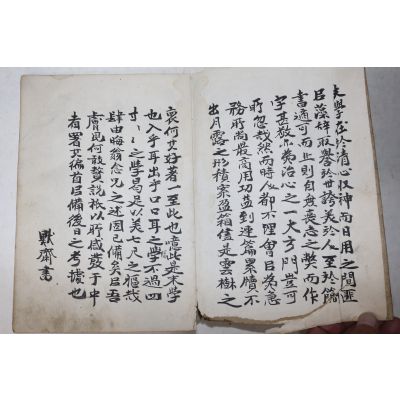 夫學在於清心收神而日用之間匪
以藻辭取譽於世誇美於人至於簡
書適可而止則自無喪志之獘而作
字甚敬亦為治心之一大方門豈可
所忽哉然而時人却不理會以為急
務所尚最高用功益到連篇累牘不
出月露之形積案盈箱儘是雲樹之
哀何其好著一至此也噫此是末學
也入乎耳出乎口口耳之學不過四
寸之學曷足以美七尺之軀哉
肆由晦翁念兄之述固已備矣以吾
膚見何敢贅說秪以所感發于中
者署其編首以備後日之考據也
齋書